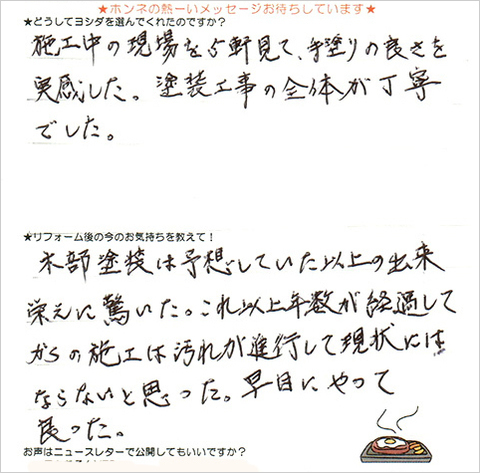 ★ホンネの熱ーいメッセージお待ちしています★
★どうしてヨシダを選んでくれたのですか?
施工中の現場を5軒見て、手塗りの良さを
実感した。塗装工事の全体が丁寧
でした。
★リフォーム後の今のお気持ちを教えて!
木部塗装は予想していた以上の出来
栄えに驚いた。これ以上年数が経過して
からの施工は汚れが進行して現状には
ならないと思った。早目にやって
良った。
お声はニュースレターで公開してもいいですか?